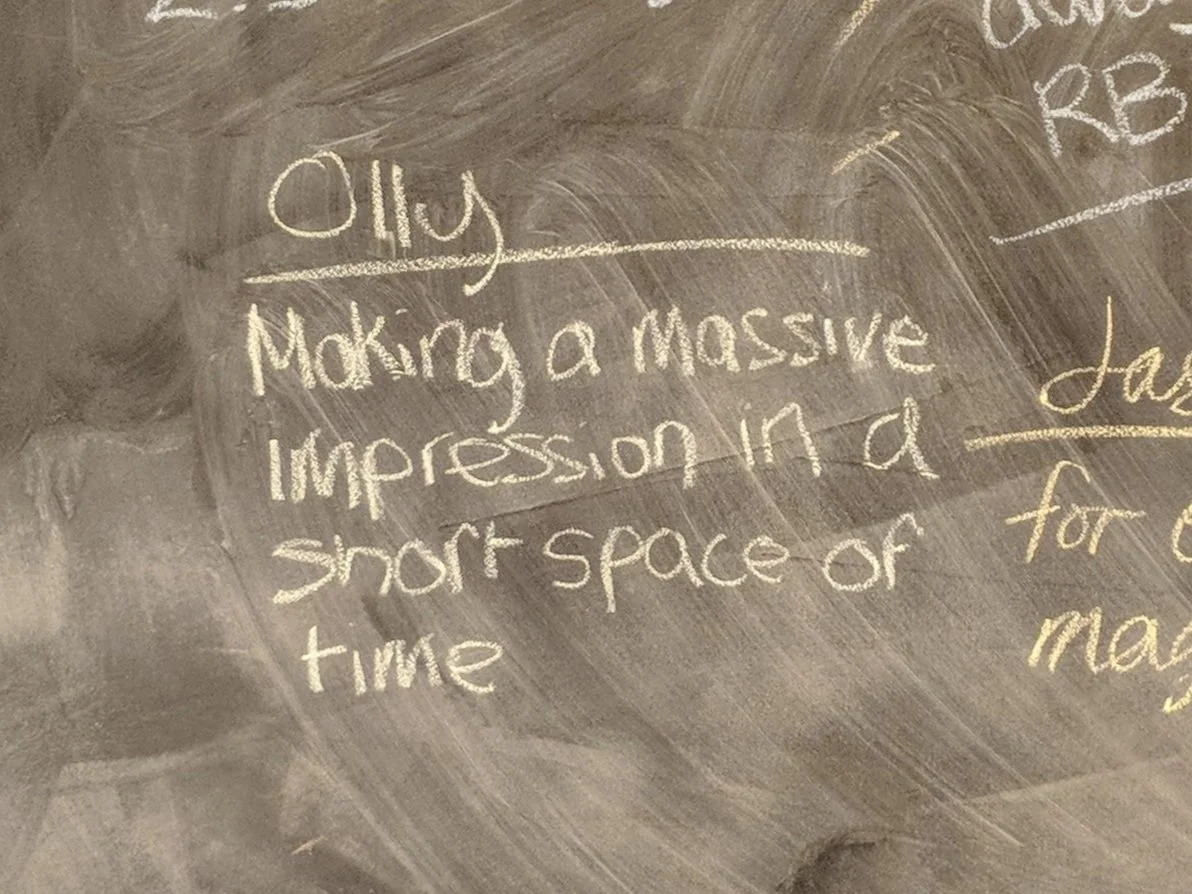 RB
Olly
Making a massive
impression in a
short space of
time
for